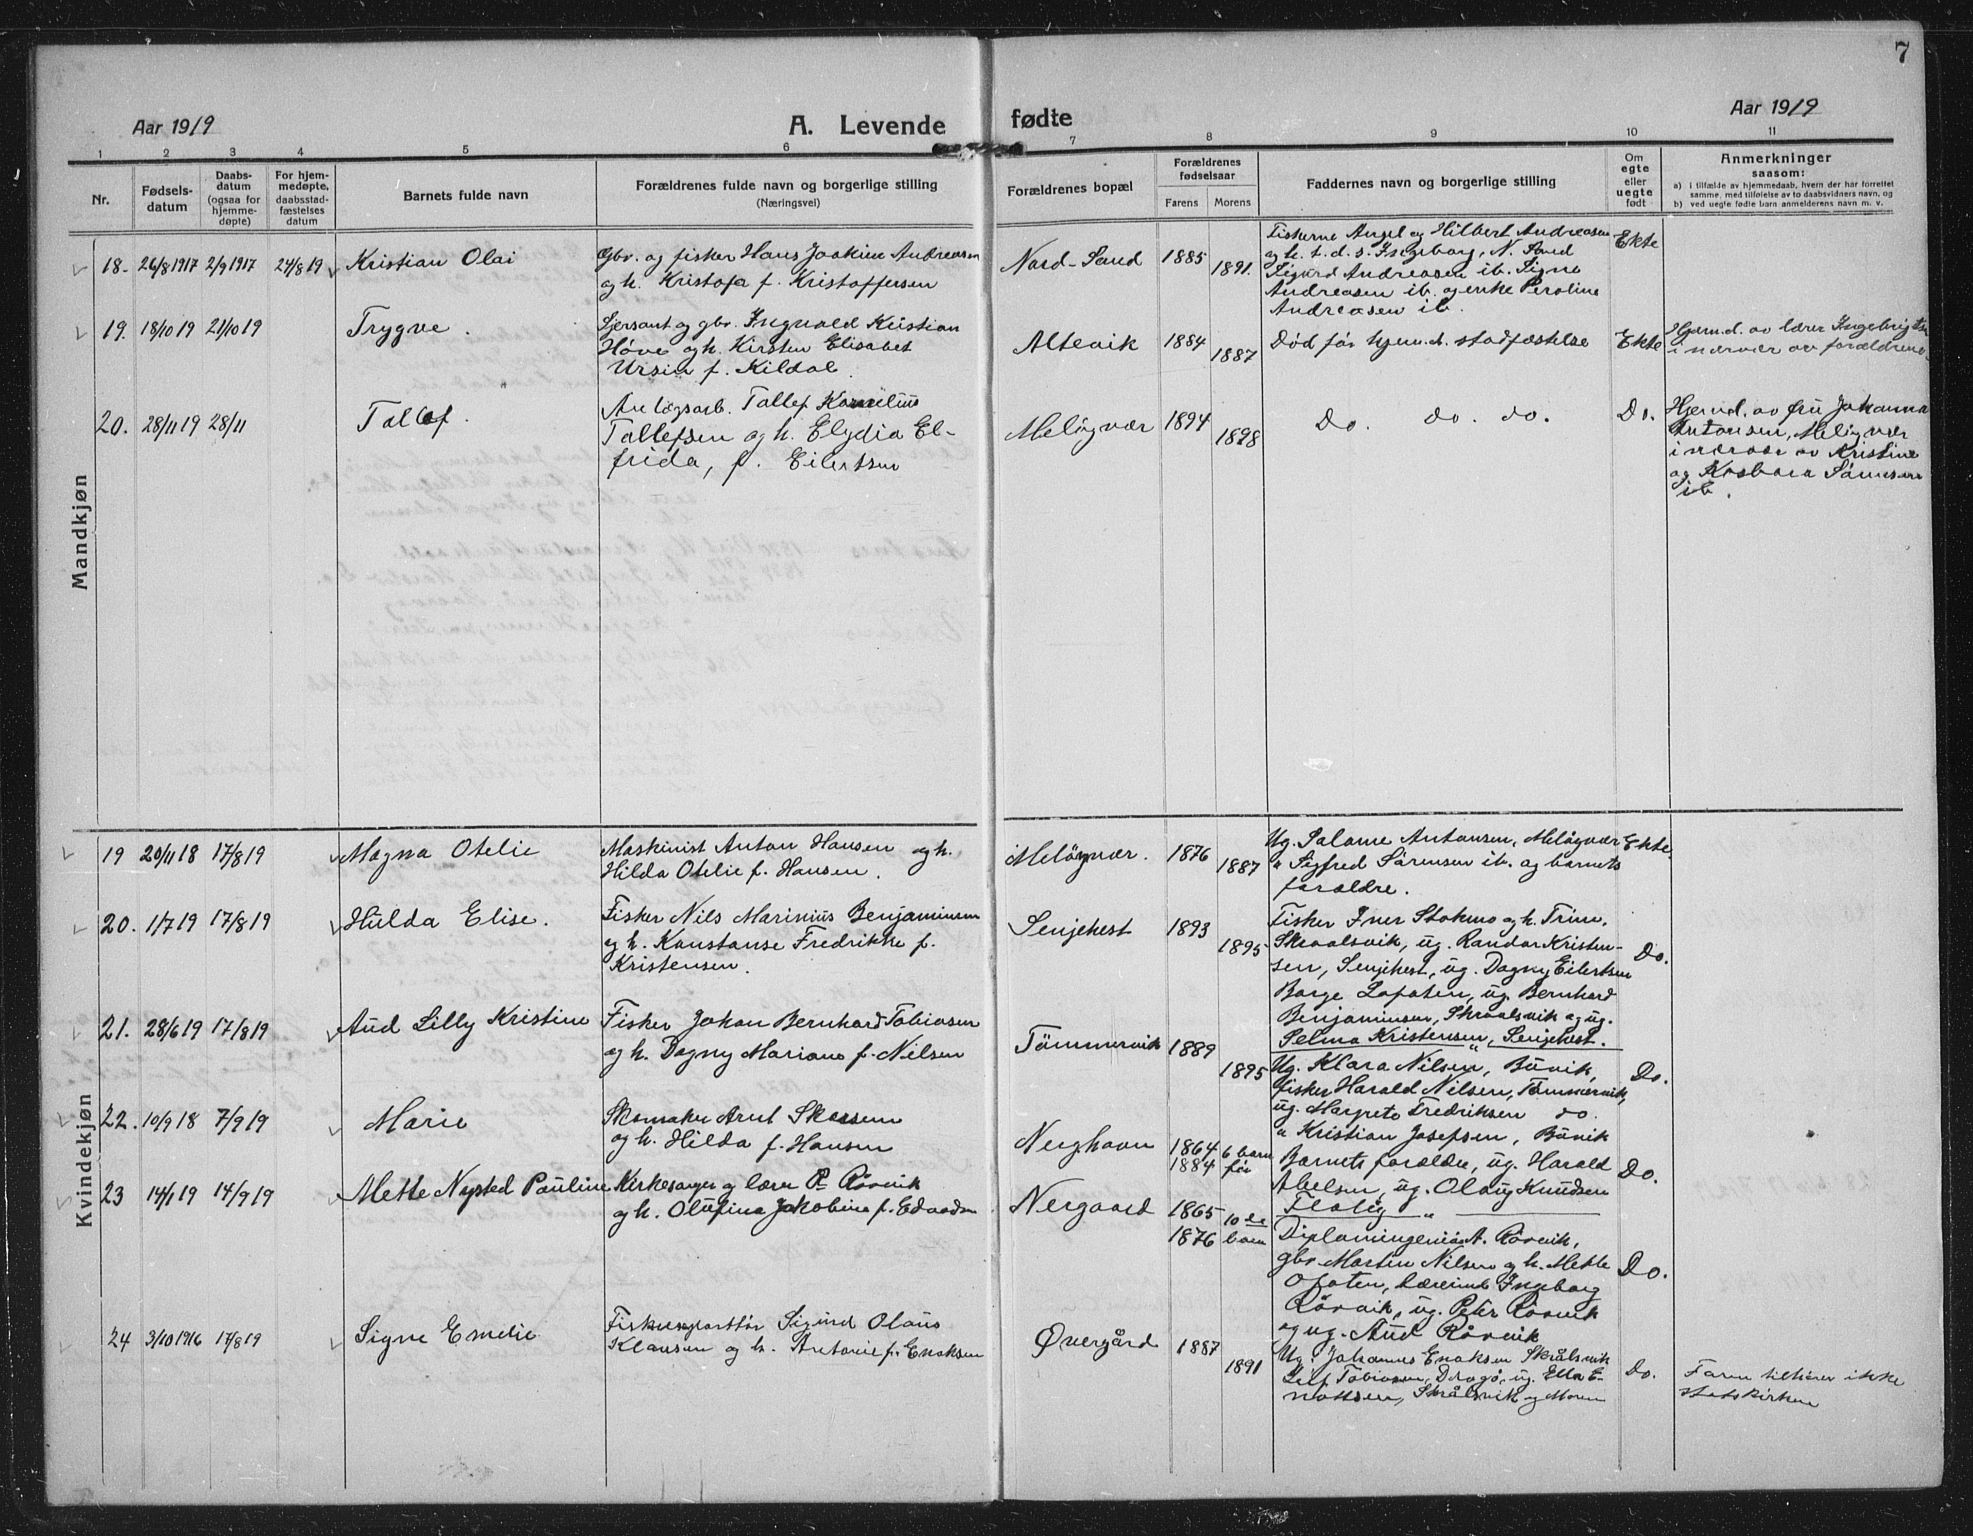 7
Aar 1919
A. Levende fødte
Aar 1919
1 2 3 4 5 6 7 8 9 10 11
Nr.
Fødsels-
datum
Daabs-
datum
(ogsaa for
hjemme-
døpte)
For hjem-
medøpte,
daabsstad-
fæstelses
datum
Barnets fulde navn
Forældrenes fulde navn og borgerlige stilling
(Næringsvei)
Forældrenes bopæl
Forældrenes
fødselsaar
Farens Morens
Faddernes navn og borgerlige stilling
Om
egte
eller
uegte
født
Anmerkninger
saasom:
a) i tilfælde av hjemmedaab, hvem der har forrettet
samme, med tilføielse av to daabsvidners navn, og
b) ved uegte fødte barn anmelderens navn m. v.
Mandkjøn
18. 26/8 1917 2/9 1917 24/8 19 Kristian Olai
Gbr. og fisker Hans Joakim Andreasen
og h. Kristofa f. Kristoffersen
Nord-Sand 1885 1891.
Fiskerne Angel og Hilbert Andreasen
og h. t. d. s. Ingeborg, N. Sand
Sigurd Andreasen ib. Signe
Andreasen ib. og enke Peroline
Andreasen ib.
Ekte
19. 18/10 19 21/10 19 Trygve.
Sjersant og gbr. Ingvald Kristian
Höve og h. Kirsten Elisabet
Ursin f. Kildal.
Altevik 1884 1887
Död før hjem.d. stadfæstelse
Ekte
Hjem.d. av lærer Ingebrigtsen
i nærvær av forældrene.
20. 28/11 19 28/11 Tollef
Anlægsarb. Tollef Kornelius
Tollefsen og h. Elydia El-
frida, f. Eilertsen
Melöyvær 1894 1898
Do. do. do.
Do.
Hjemd. av fru Johanna
Antonsen, Melöyvær
i nærvær av Kristine
og Kasbara Sörensen
ib.
Kvindekjøn
19 20/11 18 17/8 19 Magna Otelie
Maskinist Anton Hansen og h.
Hilda Otelie f. Hansen.
Melöyvær. 1876 1887
Ug. Salome Antonsen, Melöyvær
" Sigfred Sörensen ib. og barnets
forældre.
Ekte.
20. 1/7 19 17/8 19 Hulda Elise.
Fisker Nils Marinius Benjaminsen
og h. Konstanse Fredrikke f.
Kristensen.
Senjehest 1893 1895
Fisker Iver Stokmo og h. Trine.
Skraalsvik, ug. Randor Kristen-
sen, Senjehest, ug. Dagny Eilertsen
Borge Lofoten, ug. Bernhard
Benjaminsen, Skraalsvik og ug.
Selma Kristensen, Senjehest.
Do.
21. 28/6 19 17/8 19 Aud Lilly Kristine
Fisker Johan Bernhard Tobiasen
og h. Dagny Mariane f. Nilsen
Tömmervik 1889 1895
Ug. Klara Nilsen, Bövik,
fisker Harald Nilsen, Tömmervik,
ug. Margrete Fredriksen do.
" Kristian Josefsen, Bövik
Do.
22. 10/9 18 7/9 19 Marie
Skomaker Arnt Skarsem
og h. Hilda f. Hansen
Nerghavn 1864 1884 6 barn før
Barnets forældre, ug. Harald
Abelsen, ug. Olaug Knudsen
Do.
23 14/1 19 14/9 19 Mette Nysted Pauline
Kirkesanger og lærer P. Rörvik
og h. Olufina Jakobine f. Edvards
Nergaard 1865 1876 10de barn
Diplomingeniör A. Rörvik,
gbr. Martin Nilsen og h. Mette
Ofoten, lærerinde Ingeborg
Rörvik, ug. Peter Rörvik
og ug. Aud Rörvik
Do.
24 3/10 1916 17/8 19 Signe Emelie
Fiskeexportör Sigurd Olaus
Klausen og h. Antonie f. Enoksen
Øvergård 1887 1891
Ug. Johannes Enoksen Skrålsvik
Leif Tobiasen, Dragö, ug. Ella E-
noksen, Skrålsvik og Moren
Do.
Faren tilhører ikke
statskirken